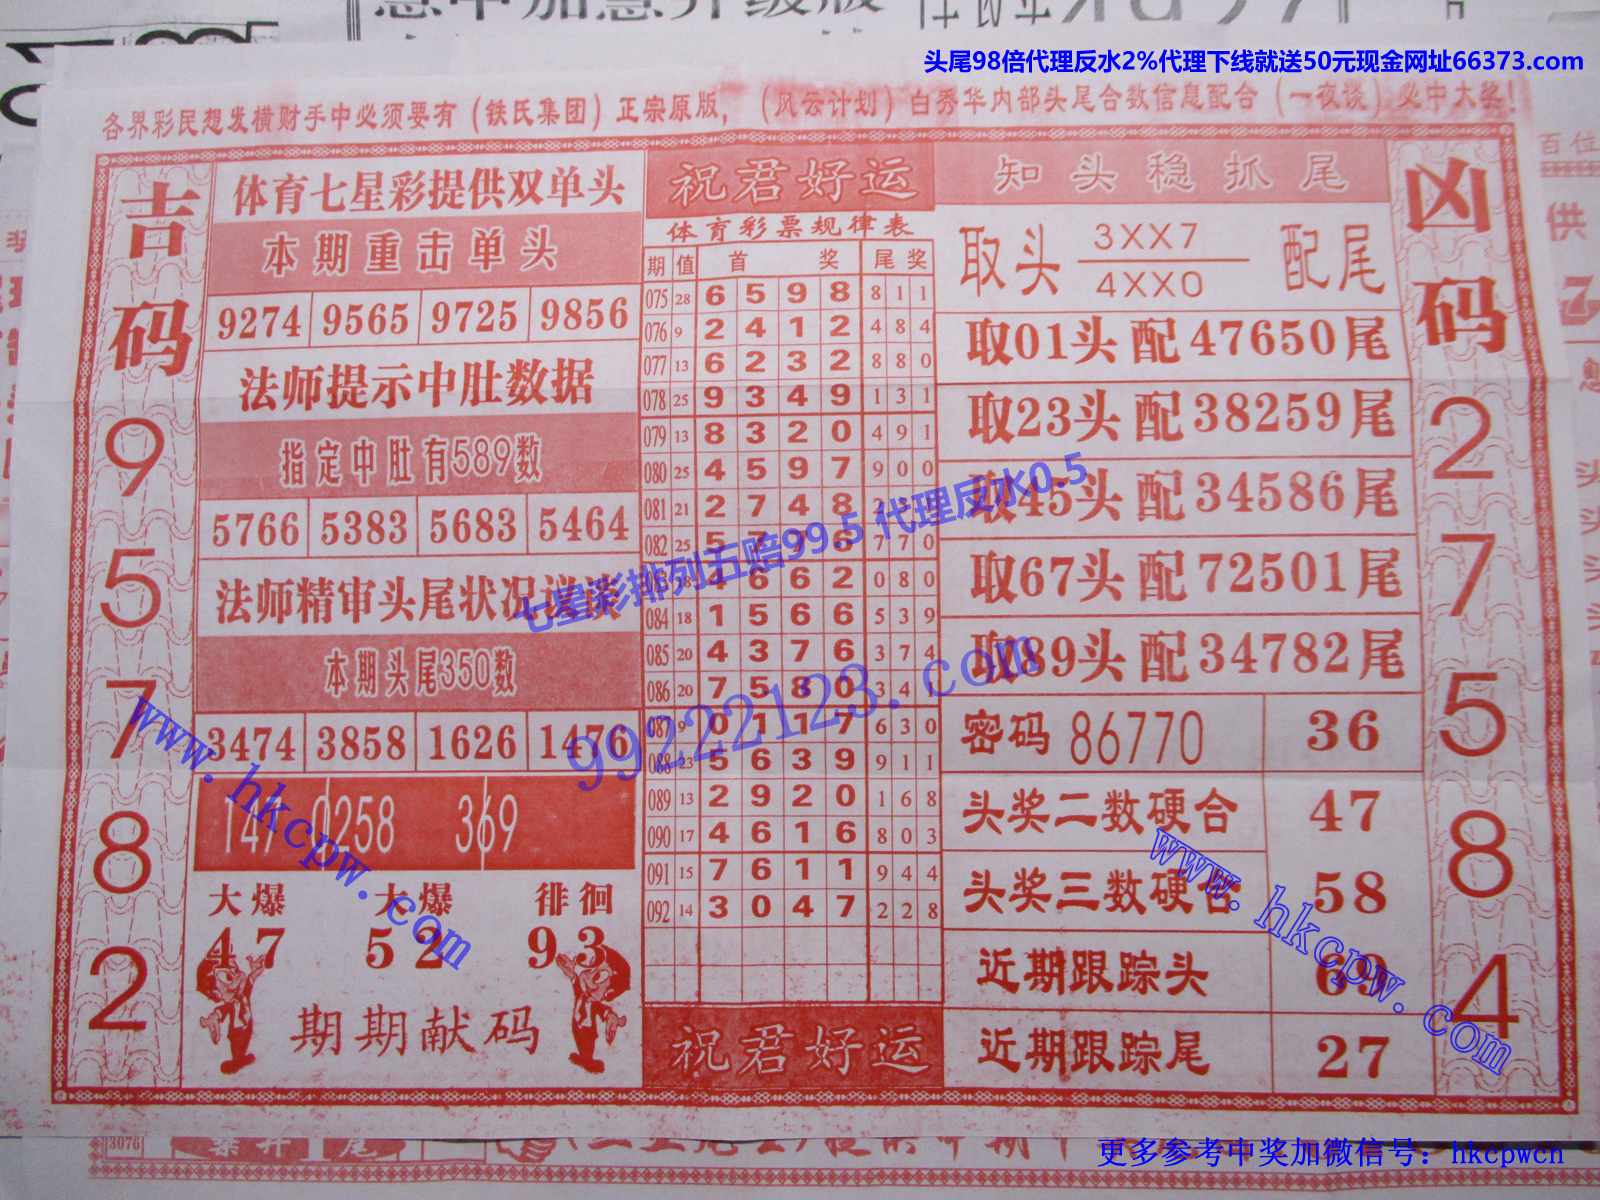 头尾98倍代理反水2%代理下线就送50元现金网址66373.com
各界彩民想发横财手中必须要有（铁氏集团）正宗原版，（风云计划）白秀华内部头尾合数信息配合（一夜谈）必中大奖！
吉码
9
5
7
8
2
体育七星彩提供双单头
本期重击单头
9274 9565 9725 9856
法师提示中肚数据
指定中肚有589数
5766 5383 5683 5464
法师精审头尾状况
本期头尾350数
3474 3858 1626 1476
147 0258 369
大爆 大爆 徘徊
47 52 93
期期献码
祝君好运
体育彩票规律表
期 值 首 奖 尾 奖
075 28 6 5 9 8 8 1 1
076 9 2 4 1 2 4 8 4
077 13 6 2 3 2 8 8 0
078 25 9 3 4 9 1 3 1
079 13 8 3 2 0 4 9 1
080 25 4 5 9 7 9 0 0
081 21 2 7 4 8
082 25 5 7 7 6 7 7 0
4 6 6 2 0 8 0
084 18 1 5 6 6 5 3 9
085 20 4 3 7 6 3 7 4
086 20 7 5 8 0 3 4
087 9 0 1 1 7 6 3 0
088 23 5 6 3 9 9 1 1
089 13 2 9 2 0 1 6 8
090 17 4 6 1 6 8 0 3
091 15 7 6 1 1 9 4 4
092 14 3 0 4 7 2 2 8
祝君好运
知头稳抓尾
取头 3XX7 配尾
4XX0
取01头配47650尾
取23头配38259尾
取45头配34586尾
取67头配72501尾
取89头配34782尾
密码 86770 36
头奖二数硬合 47
头奖三数硬合 58
近期跟踪头 69
近期跟踪尾 27
凶码
2
7
5
8
4
七星彩排列五赔99.5 代理反水0.5
99222123.com
www.hkcpw.com
www.hkcpw.com
更多参考中奖加微信号：hkcpwcn
3076